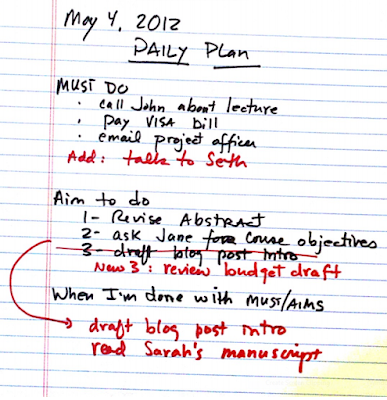 May 4, 2012
DAILY PLAN
MUST DO
· call John about lecture
· pay VISA bill
· email project officer
Add: talk to Seth
Aim to do
1- Revise ABSTRACT
2- ask Jane for course objectives
3- draft blog post intro
New 3: review budget draft
When I'm done with MUST/AIMS
draft blog post intro
read Sarah's manuscript